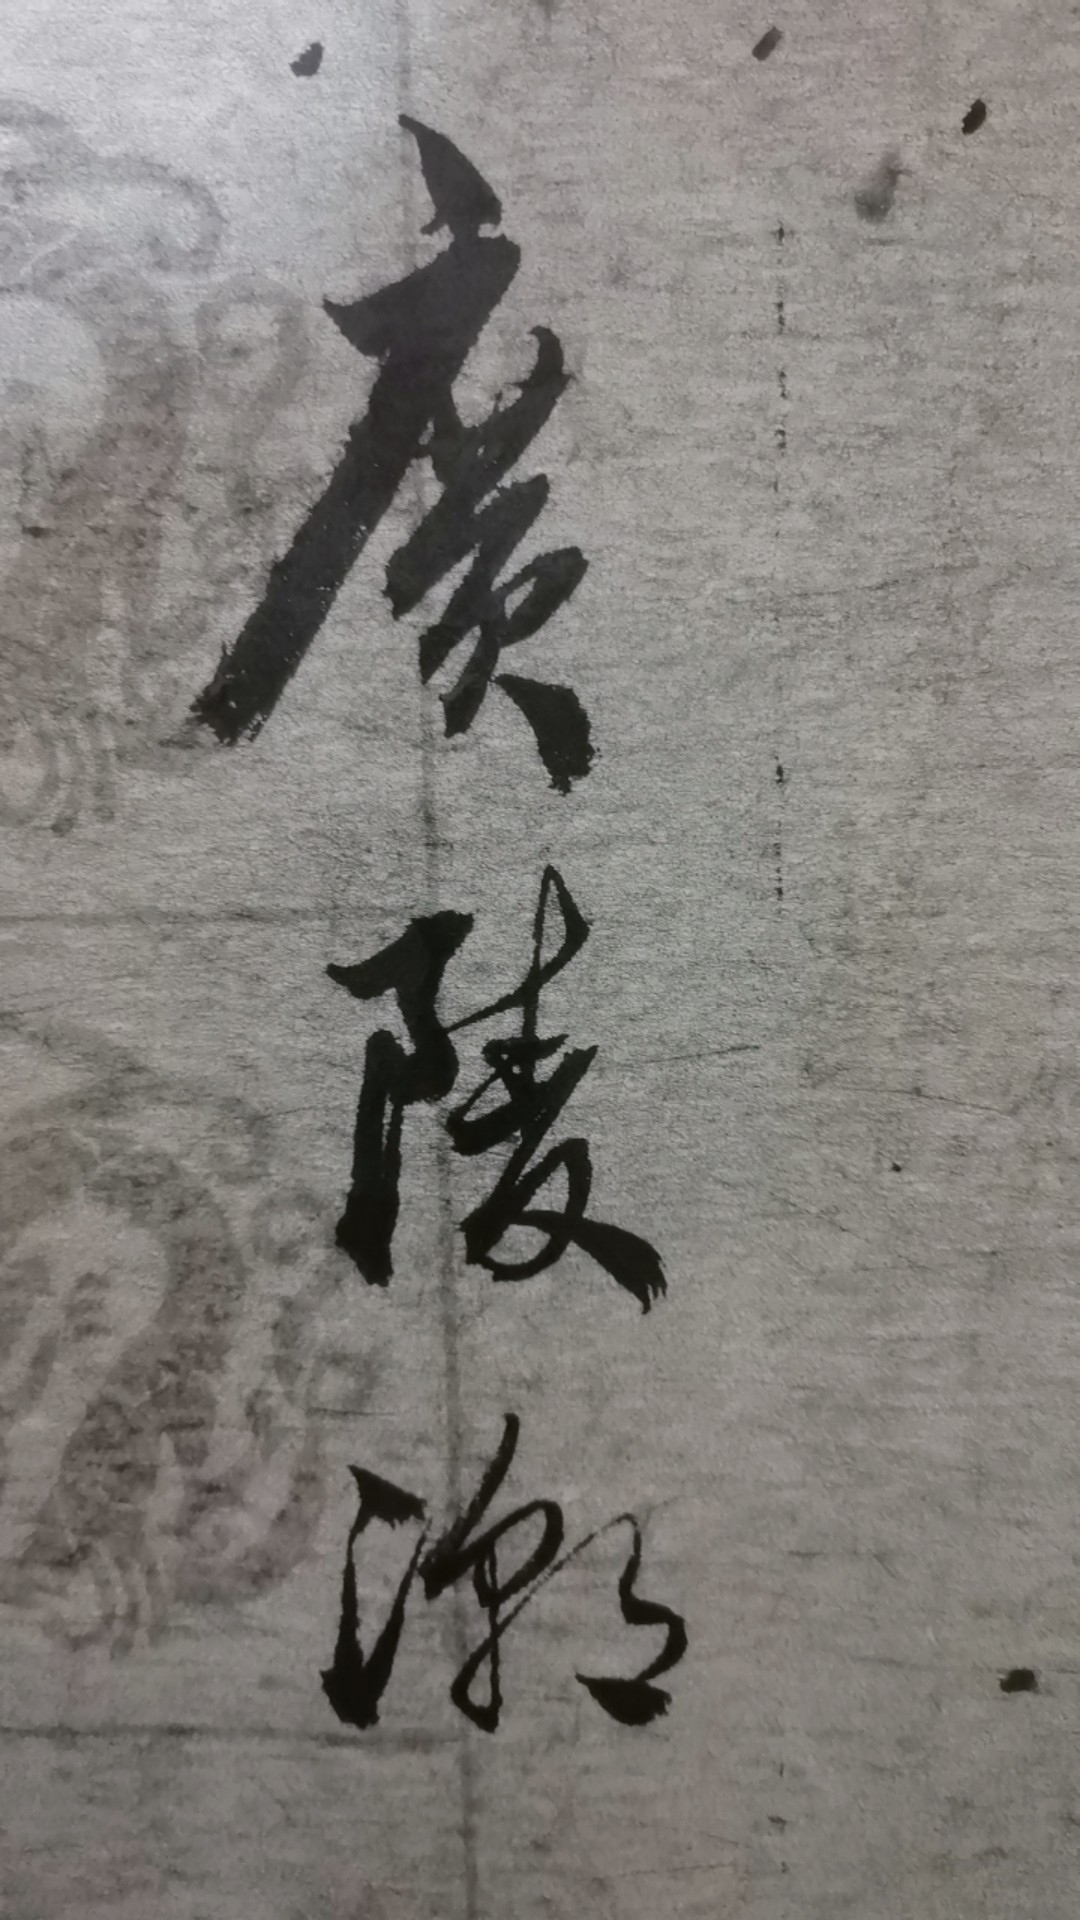 廣陵潮